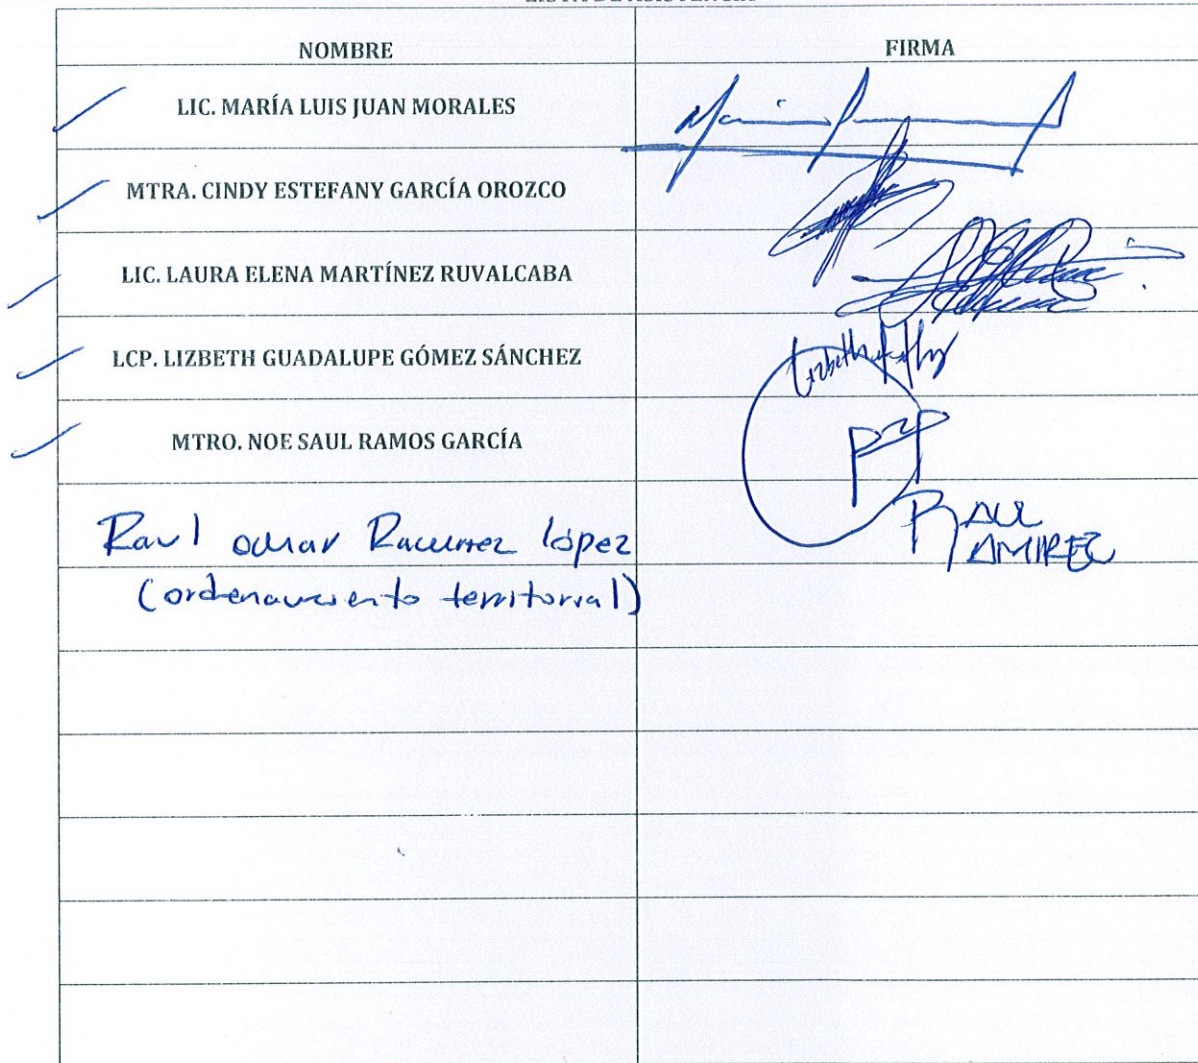 NOMBRE FIRMA
LIC. MARÍA LUIS JUAN MORALES
MTRA. CINDY ESTEFANY GARCÍA OROZCO
LIC. LAURA ELENA MARTÍNEZ RUVALCABA
LCP. LIZBETH GUADALUPE GÓMEZ SÁNCHEZ
MTRO. NOE SAUL RAMOS GARCÍA
Raul omar Ramirez lópez RAUL RAMIREZ
(ordenamiento territorial)